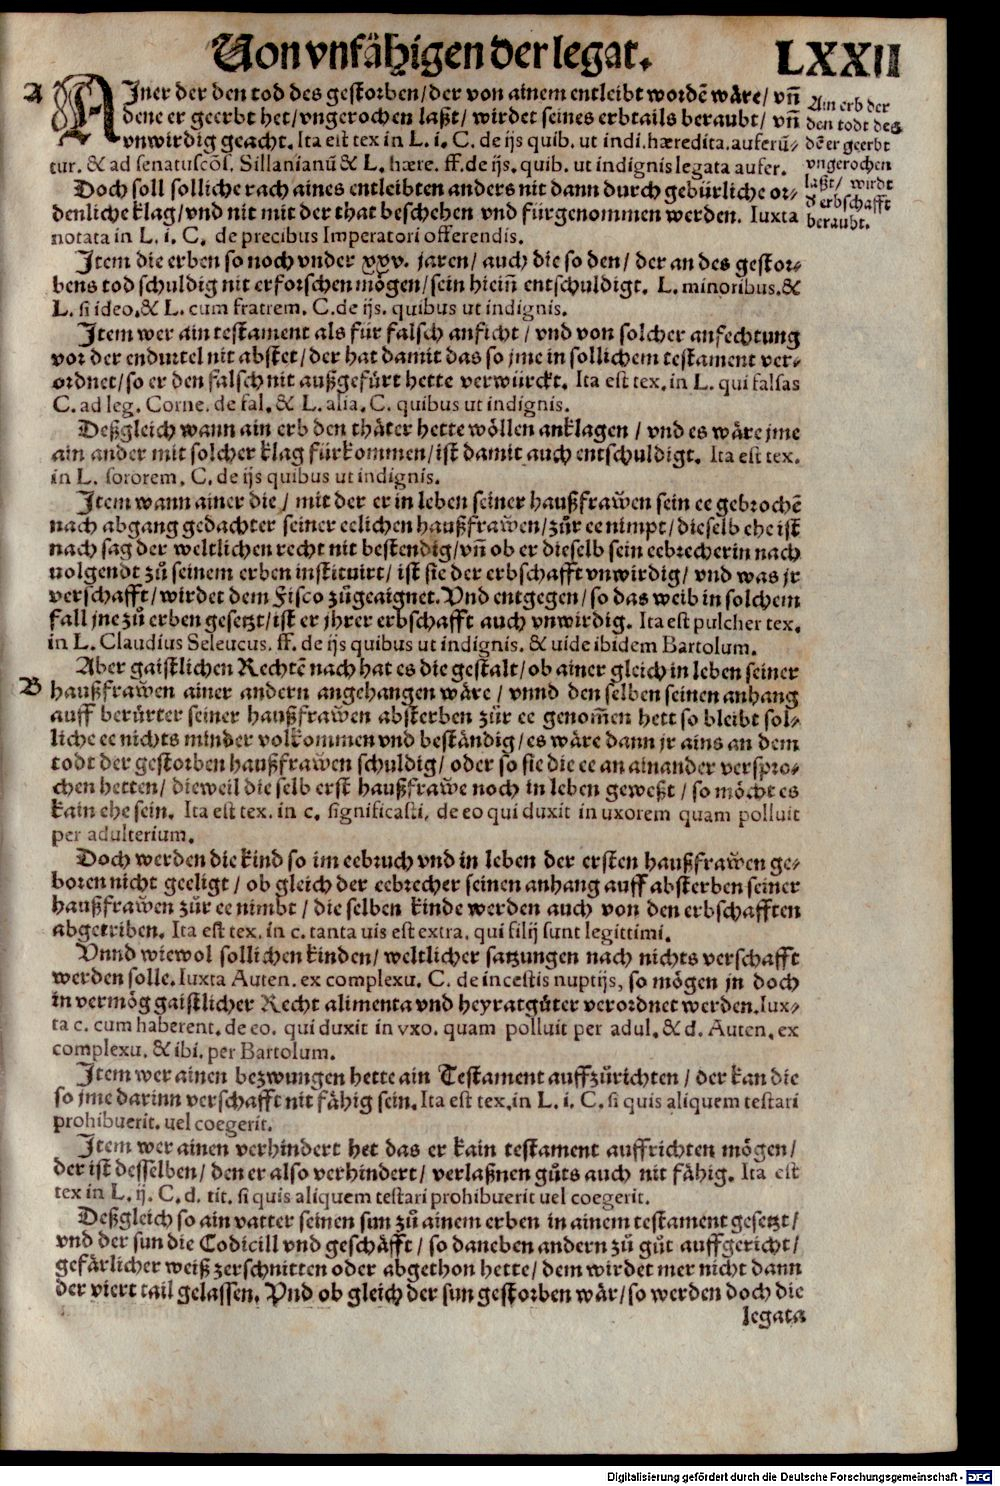 Von vnfähigen der legat. LXXII
A
AIner der den tod des gestorben/der von ainem entleibt wordē wäre/ vñ
dene er geerbt het/vngerochen laßt/ wirdet seines erbtails beraubt/ vñ
vnwirdig geacht. Ita est tex in L. i. C. de ijs quib. ut indi. hæredita. auferū-
tur. & ad senatuscōs. Sillanianū & L. hære. ff. de ijs. quib. ut indignis legata aufer.
Ain erb der
den todt des
dē er geerbt
vngerochen
laßt/ wirdt
d erbschafft
beraubt.
Doch soll solliche rach aines entleibten anders nit dann durch gebürliche or-
denliche klag/vnd nit mit der that beschehen vnd fürgenommen werden. Iuxta
notata in L. i. C. de precibus Imperatori offerendis.
Item die erben so noch vnder xxv. jaren/ auch die so den/ der an des gestor-
bens tod schuldig nit erforschen mögen/sein hieiñ entschuldigt. L. minoribus. &
L. si ideo. & L. cum fratrem. C. de ijs. quibus ut indignis.
Item wer ain testament als für falsch anficht/ vnd von solcher anfechtung
vor der endurtel nit abstet/der hat damit das so jme in sollichem testament ver-
ordnet/so er den falsch nit außgefürt hette verwürckt. Ita est tex. in L. qui falsas
C. ad leg. Corne. de fal. & L. alia. C. quibus ut indignis.
Deßgleich wann ain erb den thäter hette wöllen anklagen/ vnd es wäre jme
ain ander mit solcher klag fürkommen/ist damit auch entschuldigt. Ita est tex.
in L. sororem. C. de ijs quibus ut indignis.
Item wann ainer die/ mit der er in leben seiner haußfrawen sein ee gebrochē
nach abgang gedachter seiner eelichen haußfrawen/zůr ee nimpt/dieselb ehe ist
nach sag der weltlichen recht nit bestendig/vñ ob er dieselb sein eebrecherin nach
uolgendt zů seinem erben instituirt/ ist sie der erbschafft vnwirdig/ vnd was jr
verschafft/wirdet dem Fisco zůgeaignet. Vnd entgegen/so das weib in solchem
fall jne zů erben gesetzt/ist er jhrer erbschafft auch vnwirdig. Ita est pulcher tex.
in L. Claudius Seleucus. ff. de ijs quibus ut indignis. & uide ibidem Bartolum.
Aber gaistlichen Rechtē nach hat es die gestalt/ob ainer gleich in leben seiner
B
haußfrawen ainer andern angehangen wäre/ vnnd den selben seinen anhang
auff berürter seiner haußfrawen absterben zůr ee genom̄en hett so bleibt sol-
liche ee nichts minder volkommen vnd beständig/es wäre dann jr ains an dem
todt der gestorben haußfrawen schuldig/ oder so sie die ee an ainander verspro-
chen hetten/ dieweil die selb erst haußfrawe noch in leben geweßt/ so möcht es
kain ehe sein. Ita est tex. in c. significasti, de eo qui duxit in uxorem quam polluit
per adulterium.
Doch werden die kind so im eebruch vnd in leben der ersten haußfrawen ge-
boren nicht geeligt/ ob gleich der eebrecher seinen anhang auff absterben seiner
haußfrawen zůr ee nimbt/ die selben kinde werden auch von den erbschafften
abgetriben. Ita est tex. in c. tanta uis est extra, qui filij sunt legittimi.
Vnnd wiewol sollichen kinden/ weltlicher satzungen nach nichts verschafft
werden solle. Iuxta Auten. ex complexu. C. de incestis nuptijs, so mögen jn doch
in vermög gaistlicher Recht alimenta vnd heyratgůter verordnet werden. Iux-
ta c. cum haberent. de eo. qui duxit in vxo. quam polluit per adul. & d. Auten. ex
complexu. & ibi. per Bartolum.
Item wer ainen bezwungen hette ain Testament auffzůrichten/ der kan die
so jme darinn verschafft nit fähig sein. Ita est tex. in L. i. C. si quis aliquem testari
prohibuerit. uel coegerit.
Item wer ainen verhindert het das er kain testament auffrichten mögen/
der ist desselben/ den er also verhindert/ verlaßnen gůts auch nit fähig. Ita est
tex in L. ij. C. d. tit. si quis aliquem testari prohibuerit uel coegerit.
Deßgleich so ain vatter seinen sun zů ainem erben in ainem testament gesetzt/
vnd der sun die Codicill vnd geschäfft/ so daneben andern zů gůt auffgericht/
gefärlicher weiß zerschnitten oder abgethon hette/ dem wirdet mer nicht dann
der viert tail gelassen. Vnd ob gleich der sun gestorben wär/so werden doch die
legata
Digitalisierung gefördert durch die Deutsche Forschungsgemeinschaft - DFG